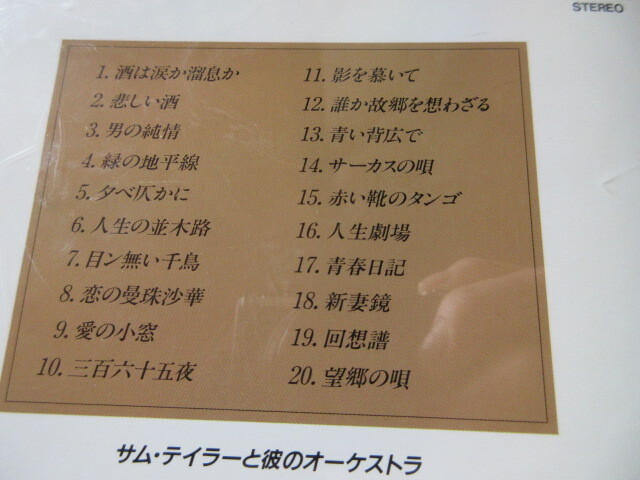 STEREO
1. 酒は涙か溜息か
2. 悲しい酒
3. 男の純情
4. 緑の地平線
5. 夕べ仄かに
6. 人生の並木路
7. 目ン無い千鳥
8. 恋の曼珠沙華
9. 愛の小窓
10. 三百六十五夜
11. 影を慕いて
12. 誰か故郷を想わざる
13. 青い背広で
14. サーカスの唄
15. 赤い靴のタンゴ
16. 人生劇場
17. 青春日記
18. 新妻鏡
19. 回想譜
20. 望郷の唄
サム・テイラーと彼のオーケストラ